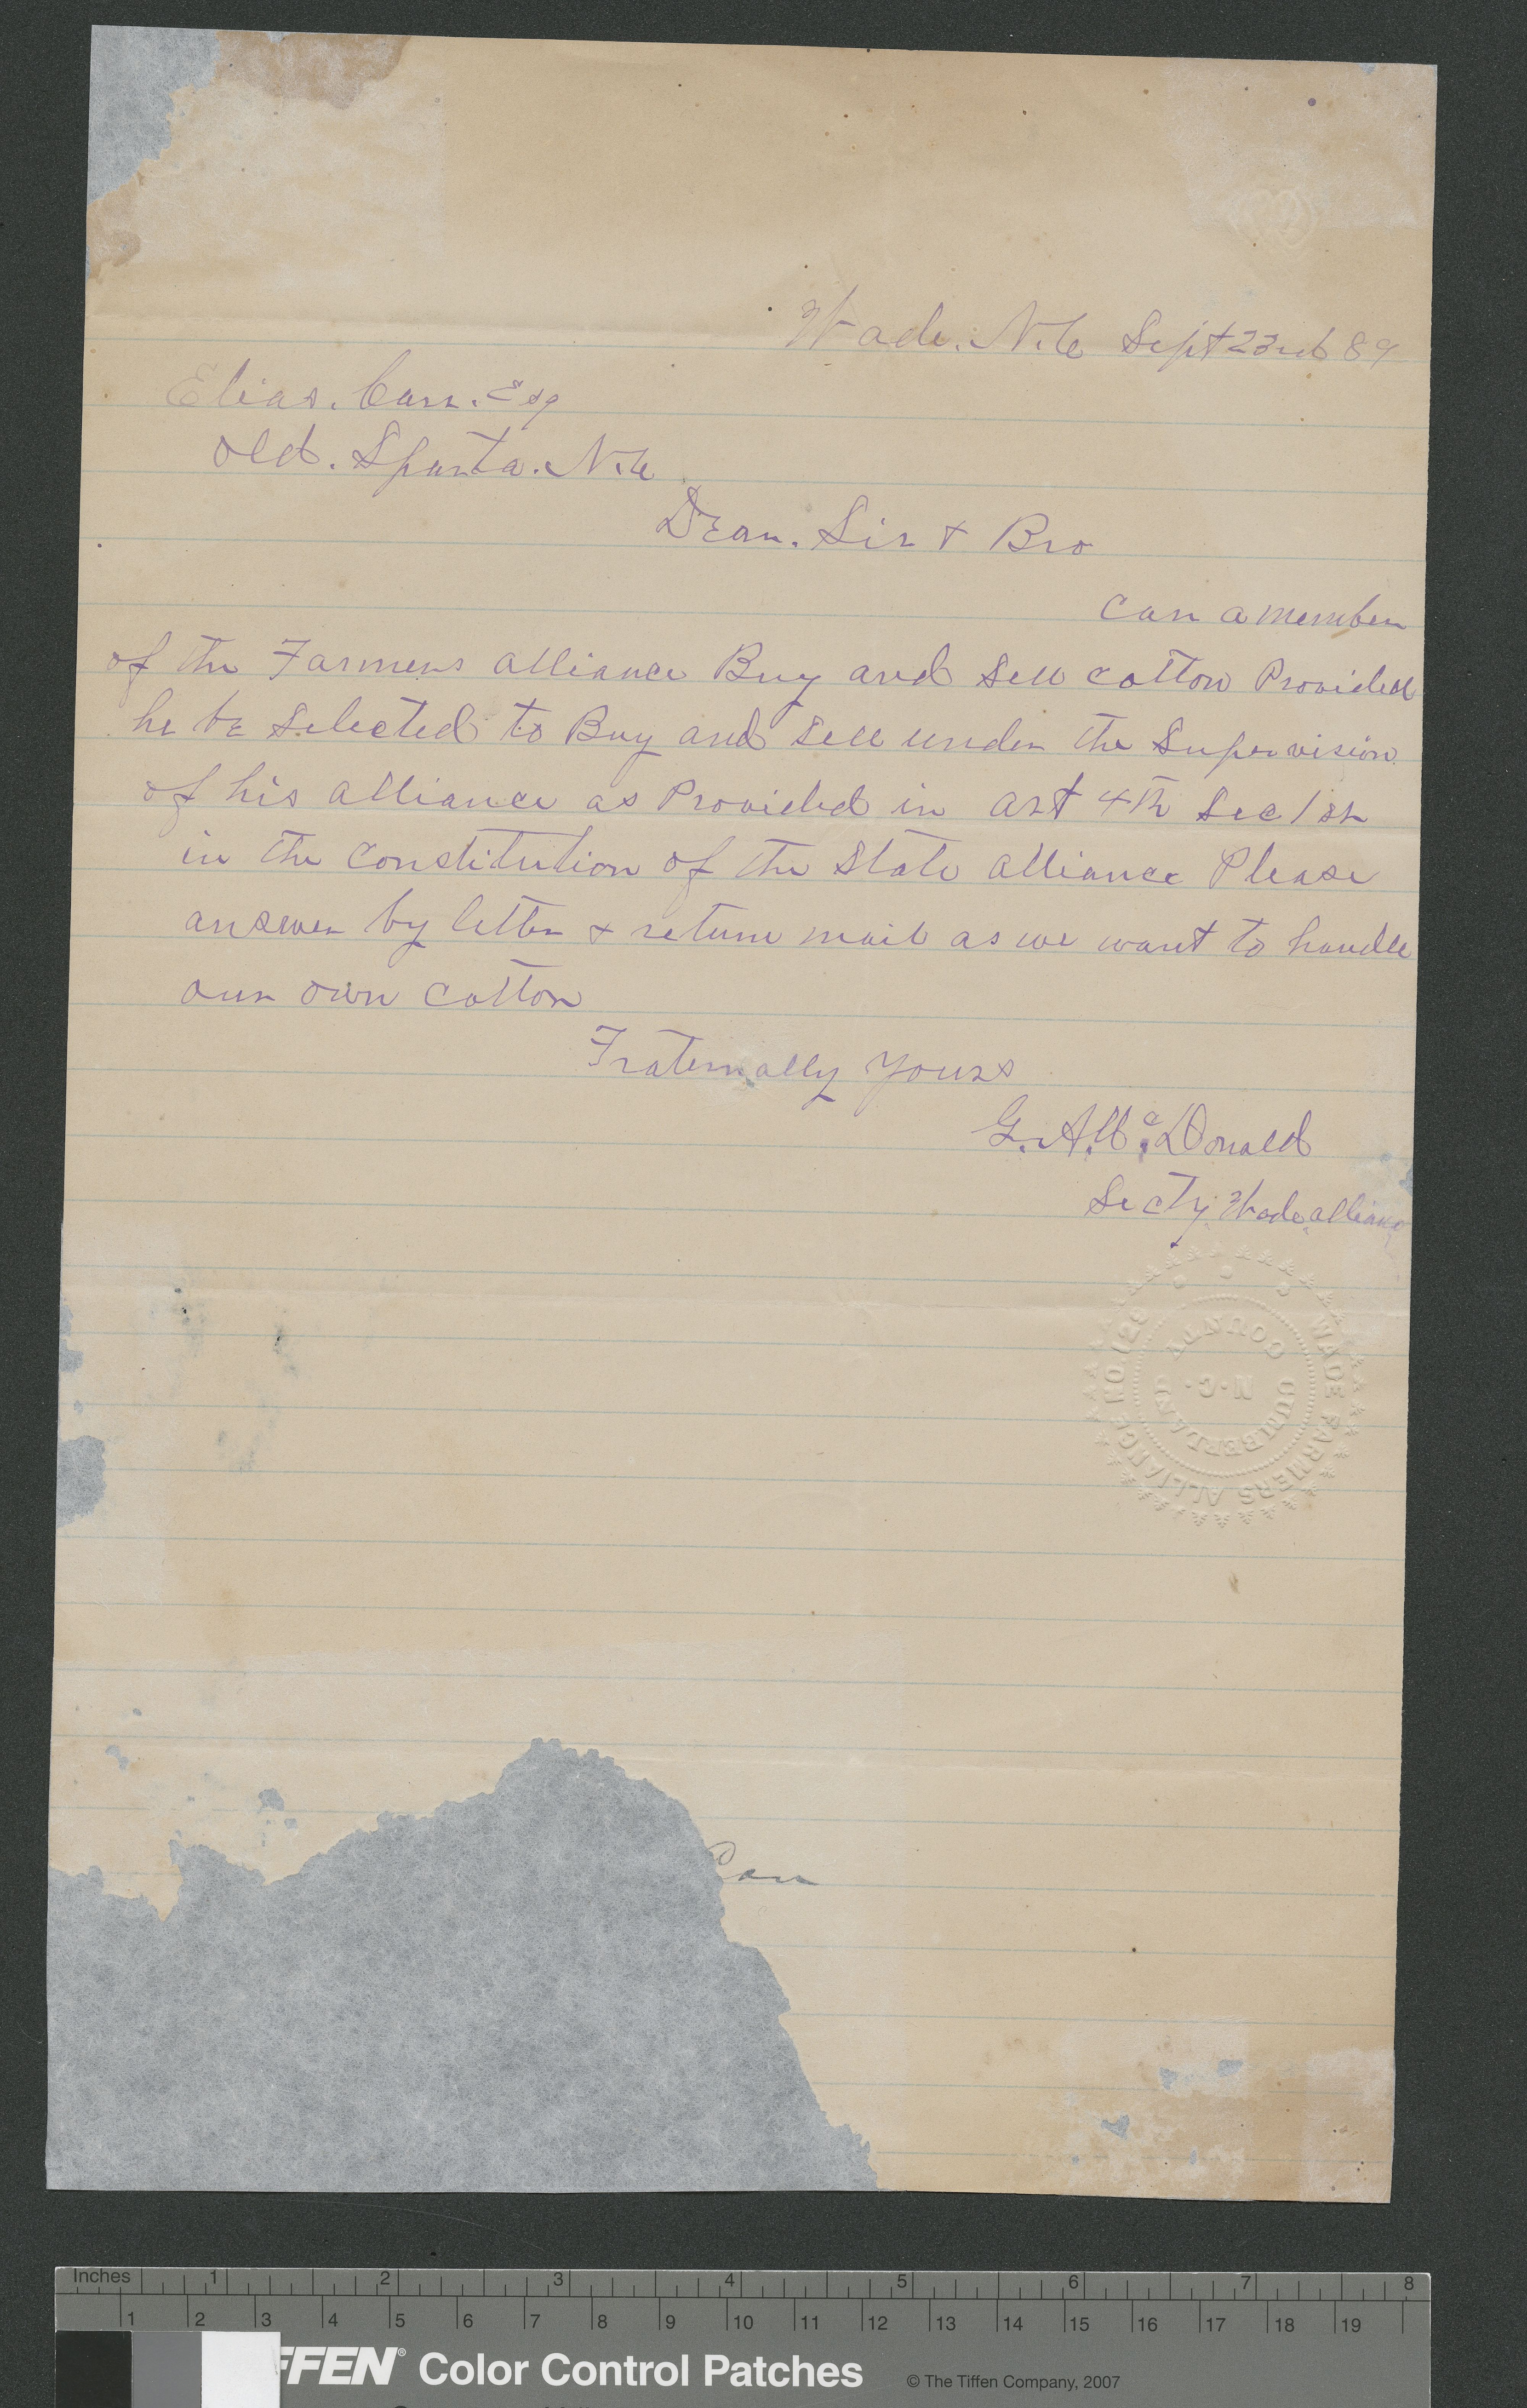 Wade. N.C Sept 23rd 89
Elias. Carr. Esq
Old. Sparta. N.C
Dear. Sir & Bro
Can a member
of the Farmers alliance Buy and Sell cotton Provided
he be Selected to Buy and Sell under the Supervision
of his alliance as Provided in art 4th Sec 1st
in the constitution of the State alliance Please
answer by letter & return mail as we want to handle
our own cotton
Fraternally yours
G. A. McDonald
Secty. Wade alliance
WADE FARMERS ALLIANCE NO 129
CUMBERLAND COUNTY
N.C.
Inches 1 2 3 4 5 6 7 8
1 2 3 4 5 6 7 8 9 10 11 12 13 14 15 16 17 18 19
FFEN® Color Control Patches © The Tiffen Company, 2007